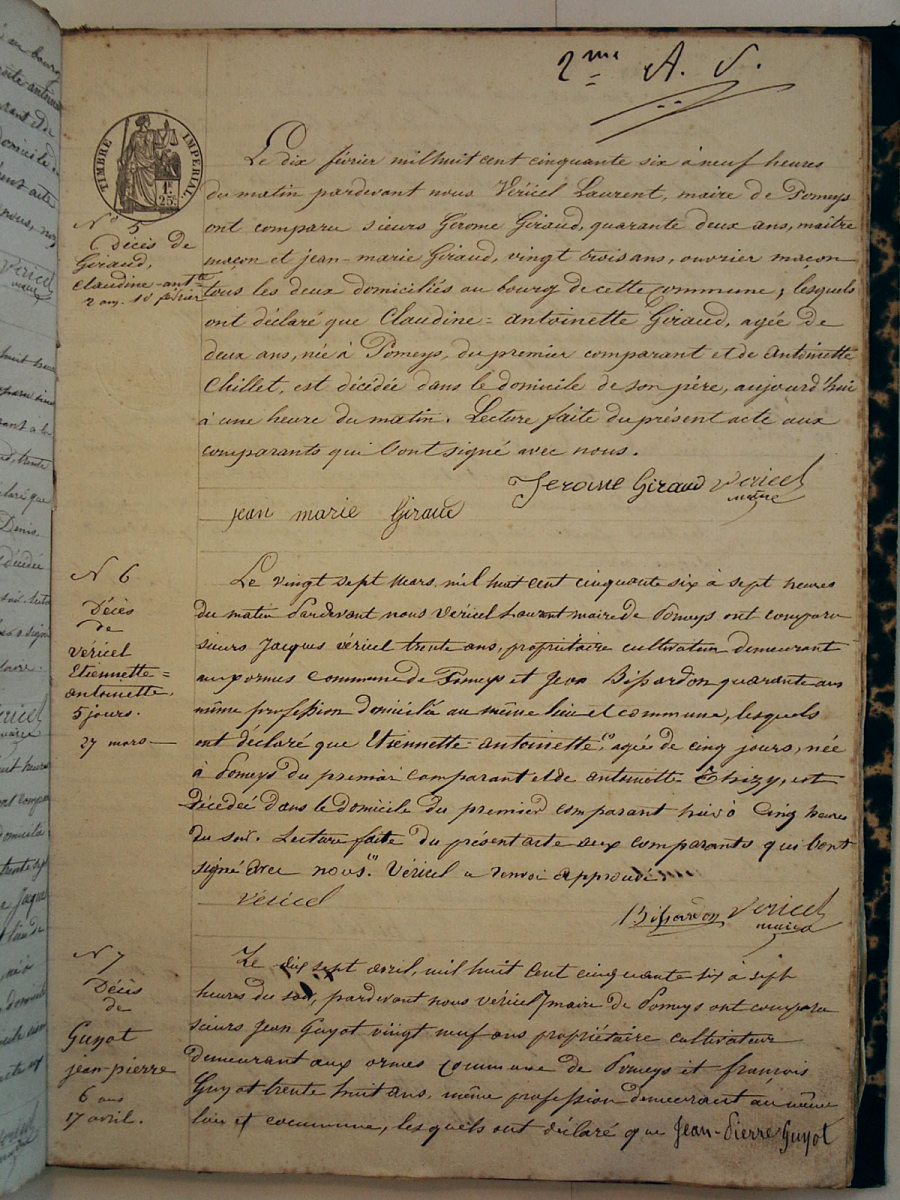 2me A. V.
TIMBRE IMPERIAL
1F
25c
Le dix février mil huit cent cinquante six à neuf heures
du matin pardevant nous Véricel Laurent, maire de Pomeys
ont comparu sieurs Gérome Giraud, quarante deux ans, maître
maçon et jean-marie Giraud, vingt trois ans, ouvrier maçon
tous les deux domiciliés au bourg de cette commune ; lesquels
ont déclaré que Claudine=antoinette Giraud, agée de
deux ans, née à Pomeys, du premier comparant et de antoinette
Chillet, est décédée dans le domicile de son père, aujourd'hui
à une heure du matin. Lecture faite du présent acte aux
comparants qui l'ont signé avec nous.
Jerome Giraud Vericel
maire
jean marie Giraud
N° 5
Décès de
Giraud,
Claudine-antte
2 ans. 10 février
N 6
Décès
de
Véricel
Etiennette=
antoinette,
5 jours.
27 mars
Le vingt sept mars, mil huit cent cinquante six à sept heures
du matin Pardevant nous Véricel Laurent maire de Pomeys ont comparu
sieurs Jacques véricel trente ans, propriétaire cultivateur demeurant
aux ormes commune de Pomeys et Jean Bissardon quarante ans
même profession domicilié au même lieu et commune, lesquels
ont déclaré que Etiennette antoinette agée de cinq jours, née
à Pomeys du premier comparant et de antoinette Thizy, est
décédée dans le domicile du premier comparant hier à Cinq heures
du soir. Lecture faite du présent acte aux comparants qui l'ont
signé avec nous. " Véricel " renvoi approuvé
Véricel
Bissardon Vericel
maire
N 7
Décès
de
Guyot
jean-pierre
6 ans
17 avril.
Le dix sept avril, mil huit cent cinquante six à sept
heures du soir, pardevant nous véricel maire de Pomeys ont comparu
sieurs Jean Guyot vingt neuf ans propriétaire cultivateur
demeurant aux ormes commune de Pomeys et françois
Guyot trente huit ans, même profession demeurant au même
lieu et commune, lesquels ont déclaré que Jean-Pierre Guyot